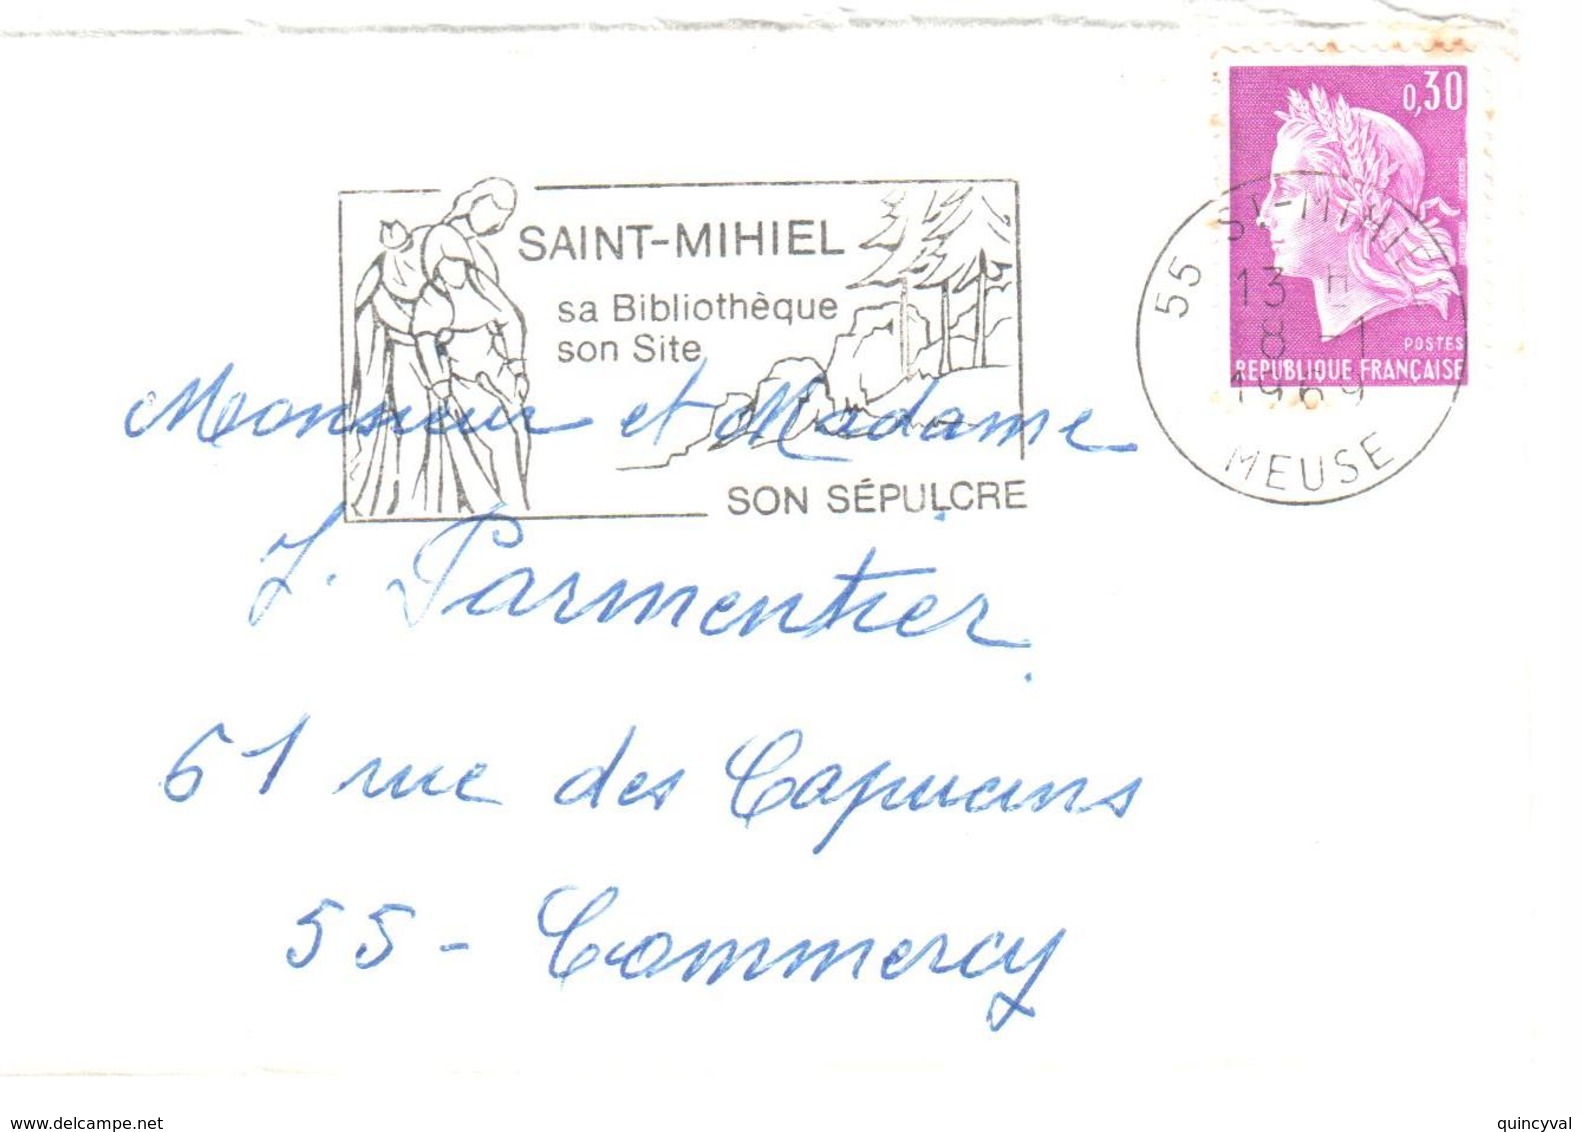 0,30
SAINT-MIHIEL
sa Bibliothèque
son Site
SON SÉPULCRE
55 ST-MIHIEL
13 H
8 - 1
1969
MEUSE
POSTES
REPUBLIQUE FRANÇAISE
Monsieur et Madame
J. Parmentier.
61 rue des Capucins
55 - Commercy
delcampe.net
quincyval